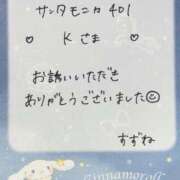 サンタモニカ 401
♡ Kさま ♡
お誘いいただき
ありがとうございました☺
すずね
Cinnamoroll